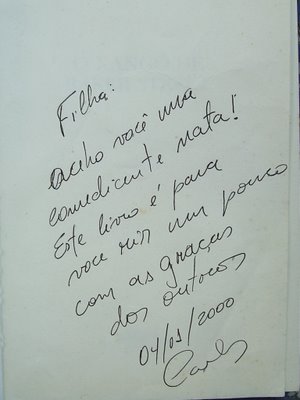 Filha:
acho você uma
comediante nata!
Este livro é para
voce rir um pouco
com as graças
dos outros
04/01/2000